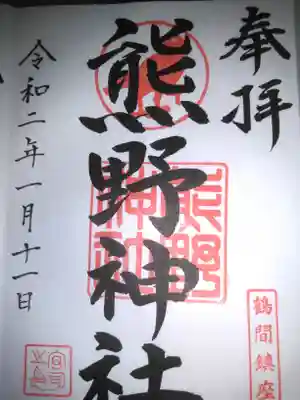 奉拝
熊野神社
熊野
神社
鶴間鎮座
令和二年一月十一日
宮司
之印